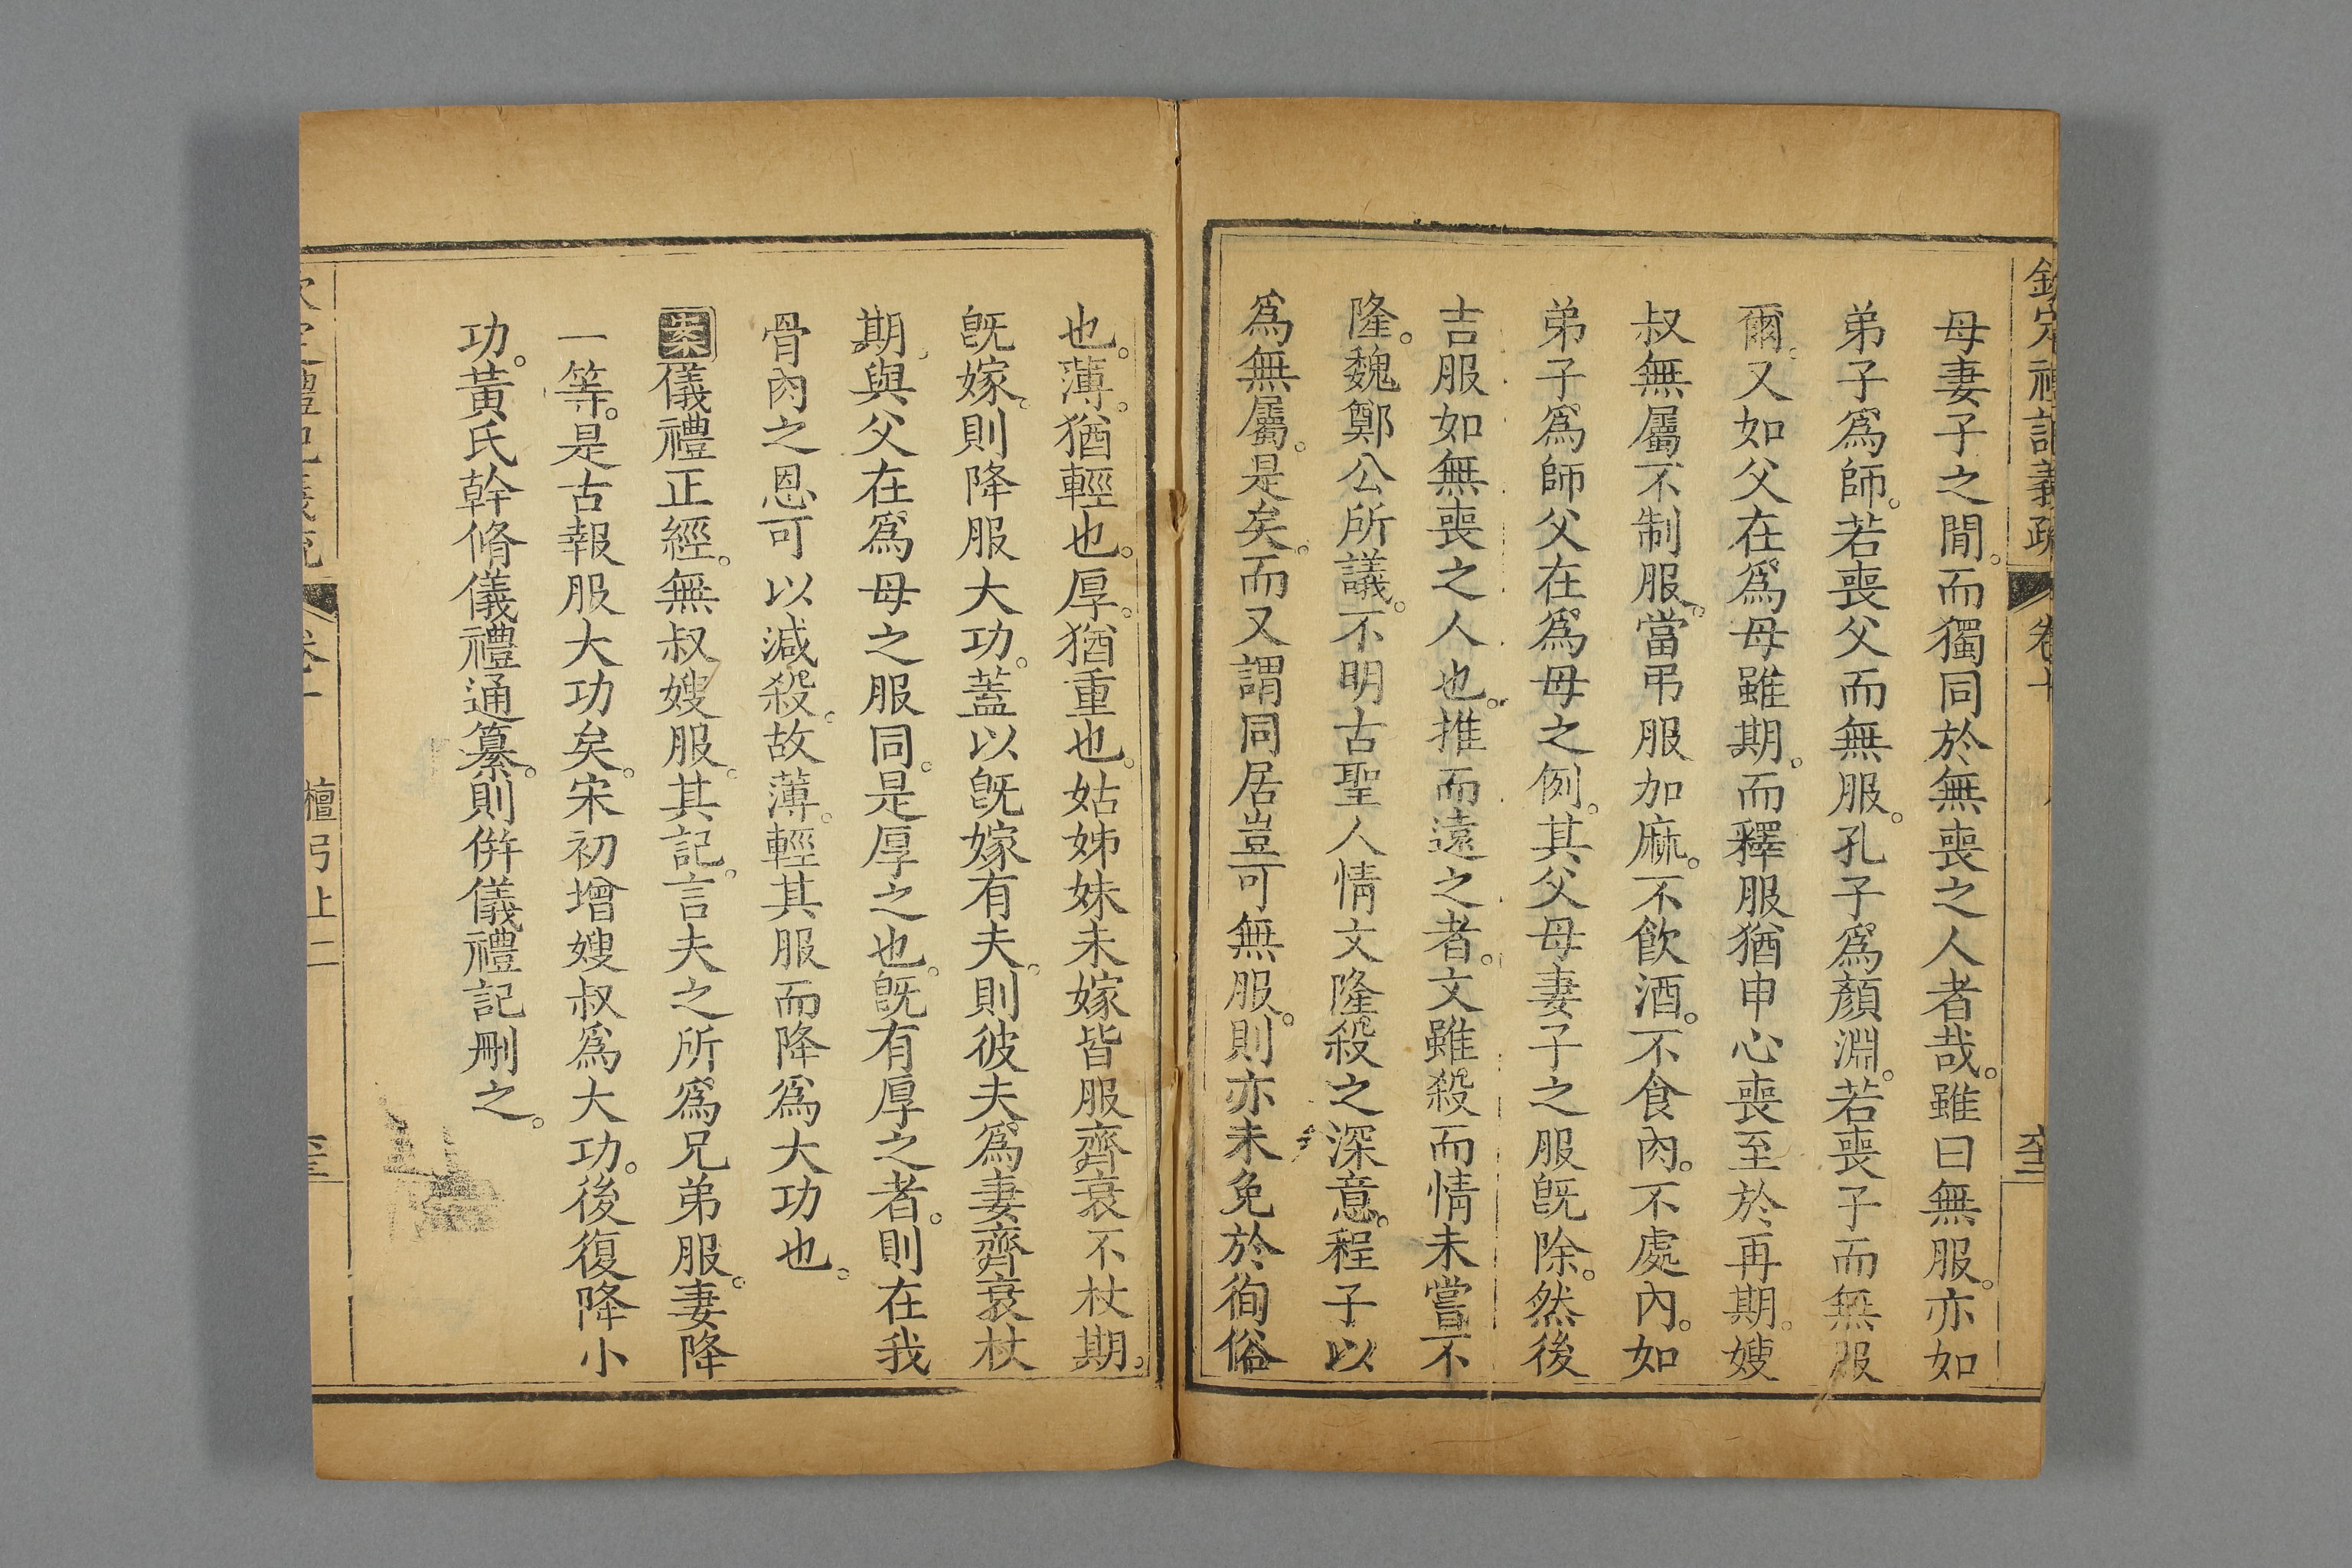 欽定禮記義疏 卷十
母妻子之閒。而獨同於無喪之人者哉。雖曰無服。亦如
弟子爲師。若喪父而無服。孔子爲顏淵。若喪子而無服
爾。又如父在爲母雖期。而釋服猶申心喪至於再期。嫂
叔無屬不制服。當弔服加麻。不飮酒。不食肉。不處內。如
弟子爲師父在爲母之例。其父母妻子之服旣除。然後
吉服如無喪之人也。推而遠之者。文雖殺而情未嘗不
隆。魏鄭公所議。不明古聖人情文隆殺之深意。程子以
爲無屬。是矣。而又謂同居豈可無服。則亦未免於徇俗
也。薄。猶輕也。厚。猶重也。姑姊妹未嫁皆服齊衰不杖期。
旣嫁。則降服大功。蓋以旣嫁有夫。則彼夫爲妻齊衰杖
期。與父在爲母之服同。是厚之也。旣有厚之者。則在我
骨肉之恩可以減殺。故薄。輕其服而降爲大功也。
案儀禮正經。無叔嫂服。其記。言夫之所爲兄弟服。妻降
一等。是古報服大功矣。宋初增嫂叔爲大功。後復降小
功。黃氏幹脩儀禮通纂。則併儀禮記刪之。
欽定禮記義疏 卷十 檀弓上二